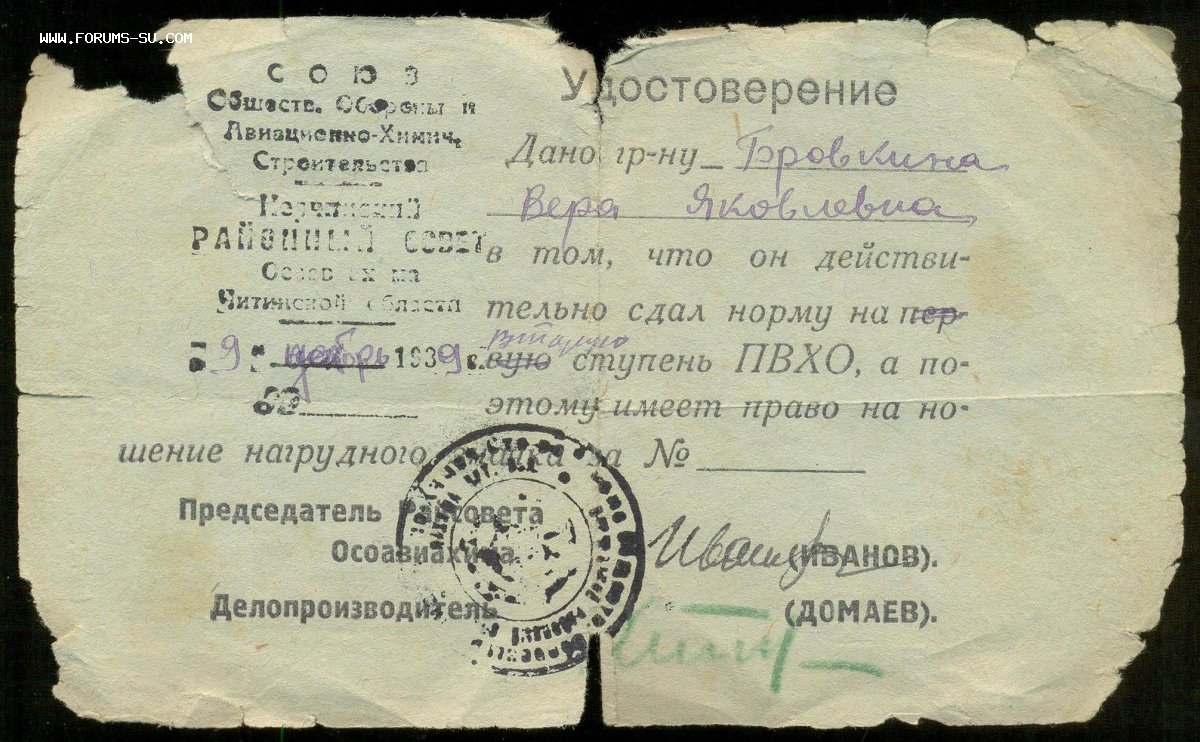 www.forums-su.com
СОЮЗ
Обществ. Обороны и
Авиационно-Химич.
Строительства
Нерчинский
РАЙОННЫЙ СОВЕТ
Осоавиахима
Читинской области
9 1939 г.
Удостоверение
Дано гр-ну Бровкина
Вера Яковлевна
в том, что он действи-
тельно сдал норму на пер-
вторую
вую ступень ПВХО, а по-
этому имеет право на но-
шение нагрудного значка за №
Председатель Райсовета
Осоавиахима
(ИВАНОВ).
Делопроизводитель
(ДОМАЕВ).